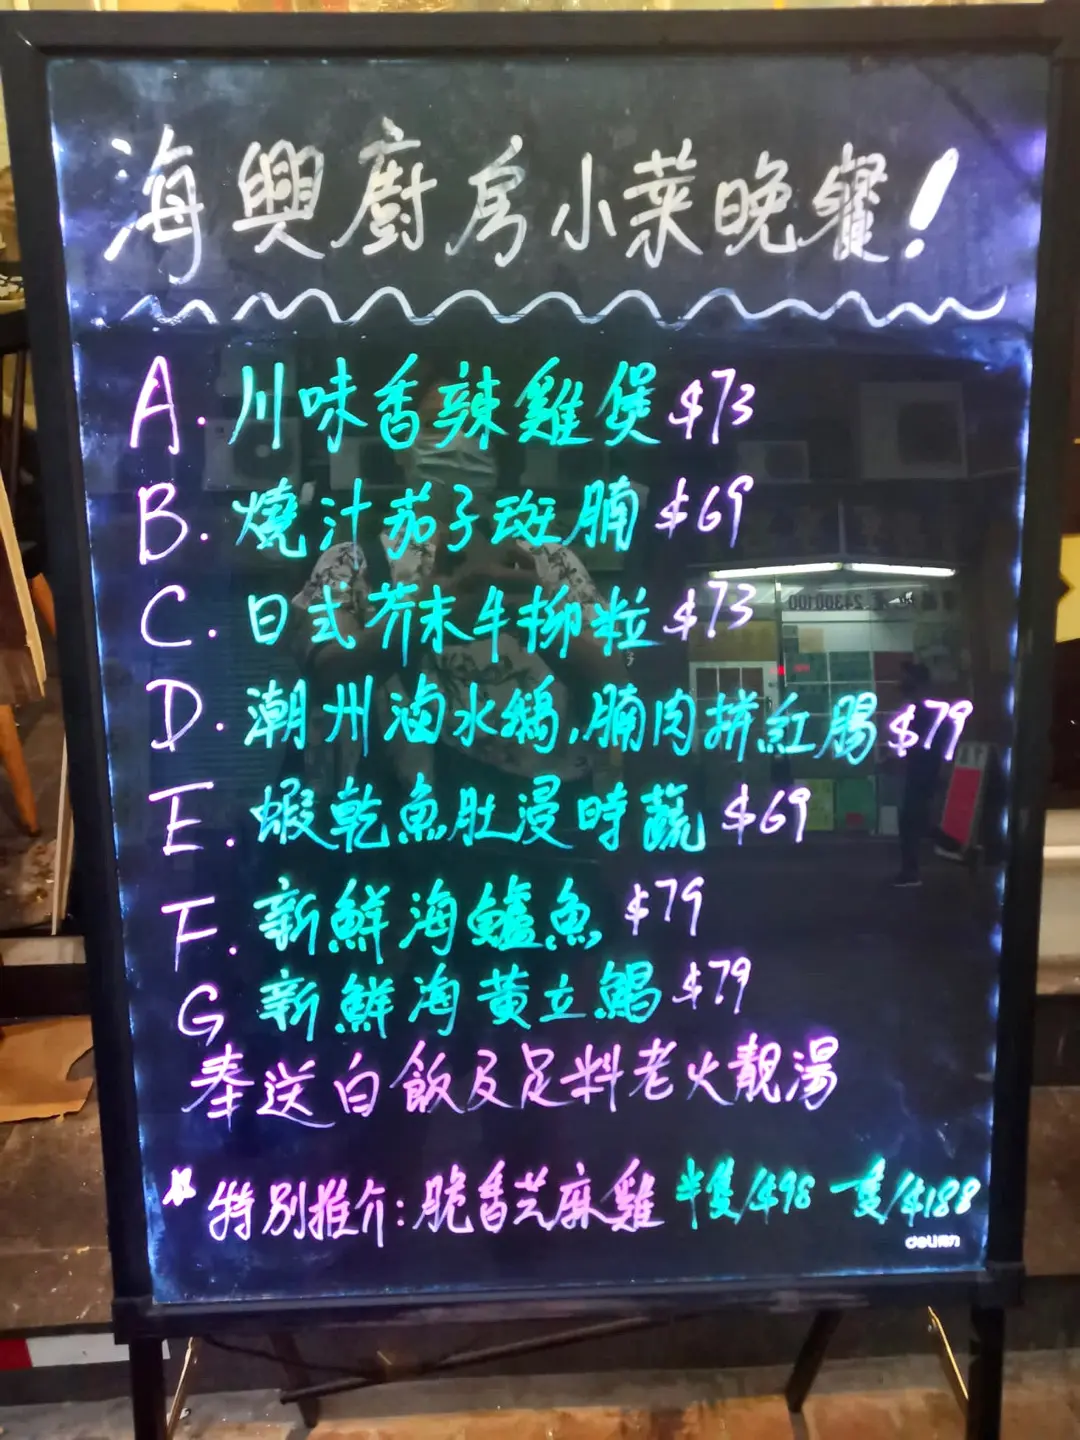 海興廚房小菜晚餐！
A. 川味香辣雞煲 $73
B. 燒汁茄子斑腩 $69
C. 日式芥末牛柳粒 $73
D. 潮州滷水鵝,腩肉拼紅腸 $79
E. 蝦乾魚肚浸時蔬 $69
F. 新鮮海鱸魚 $79
G 新鮮海黃立鯧 $79
奉送白飯及足料老火靚湯
特別推介:脆香芝麻雞 半隻/$98 一隻/$188
deli得力
24300100